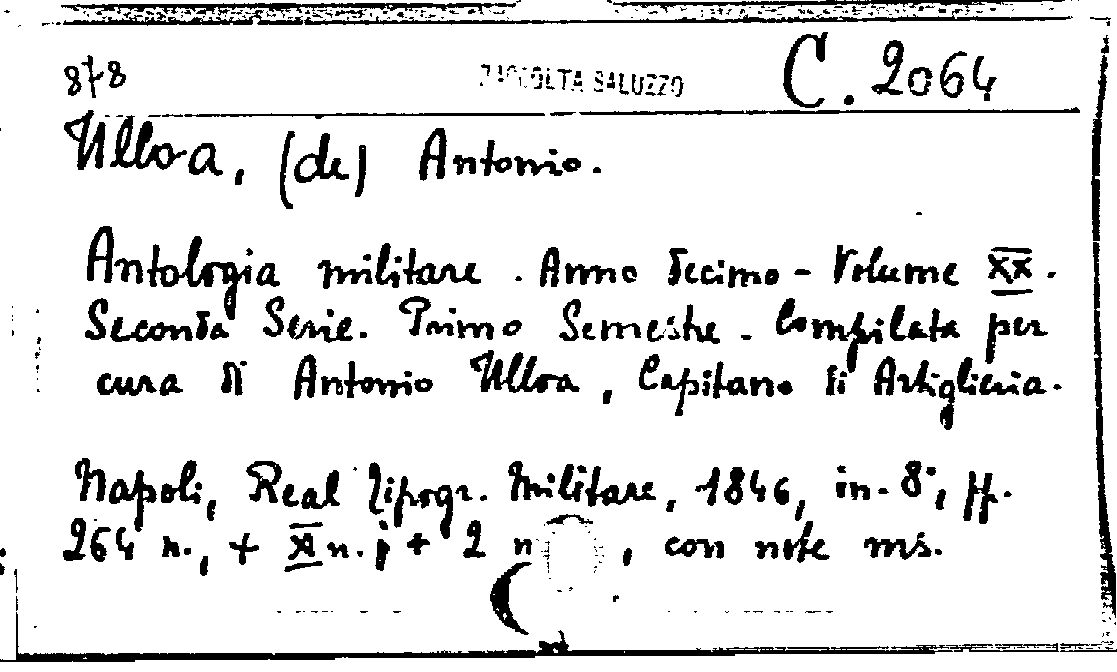 878 RACCOLTA SALUZZO C. 2064
Ulloa, (de) Antonio.
Antologia militare. Anno Decimo - Volume XX.
Seconda Serie. Primo Semestre. Compilata per
cura di Antonio Ulloa, Capitano di Artiglieria.
Napoli, Real Tipogr. Militare, 1846, in-8°, pp.
264 n., + XI n. p + 2 n , con note ms.